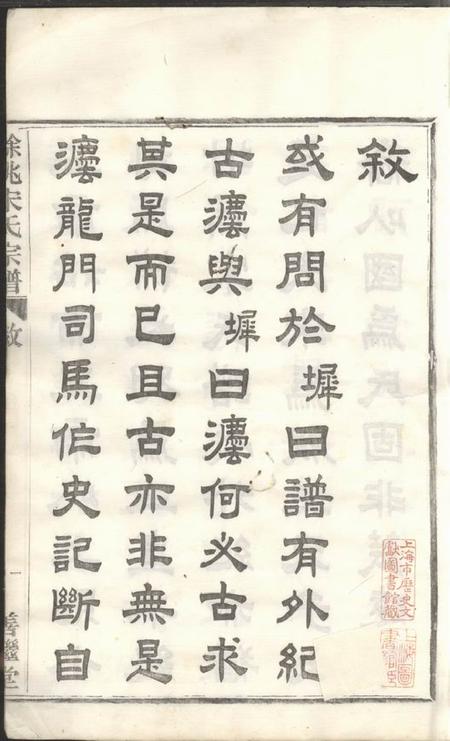 敘
或有問於墀曰譜有外紀
古灋與墀曰灋何必古求
其是而已且古亦非無是
灋龍門司馬作史記斷自
餘姚宋氏宗譜
敘
一
善繼堂
上海市歷史文
獻圖書館藏